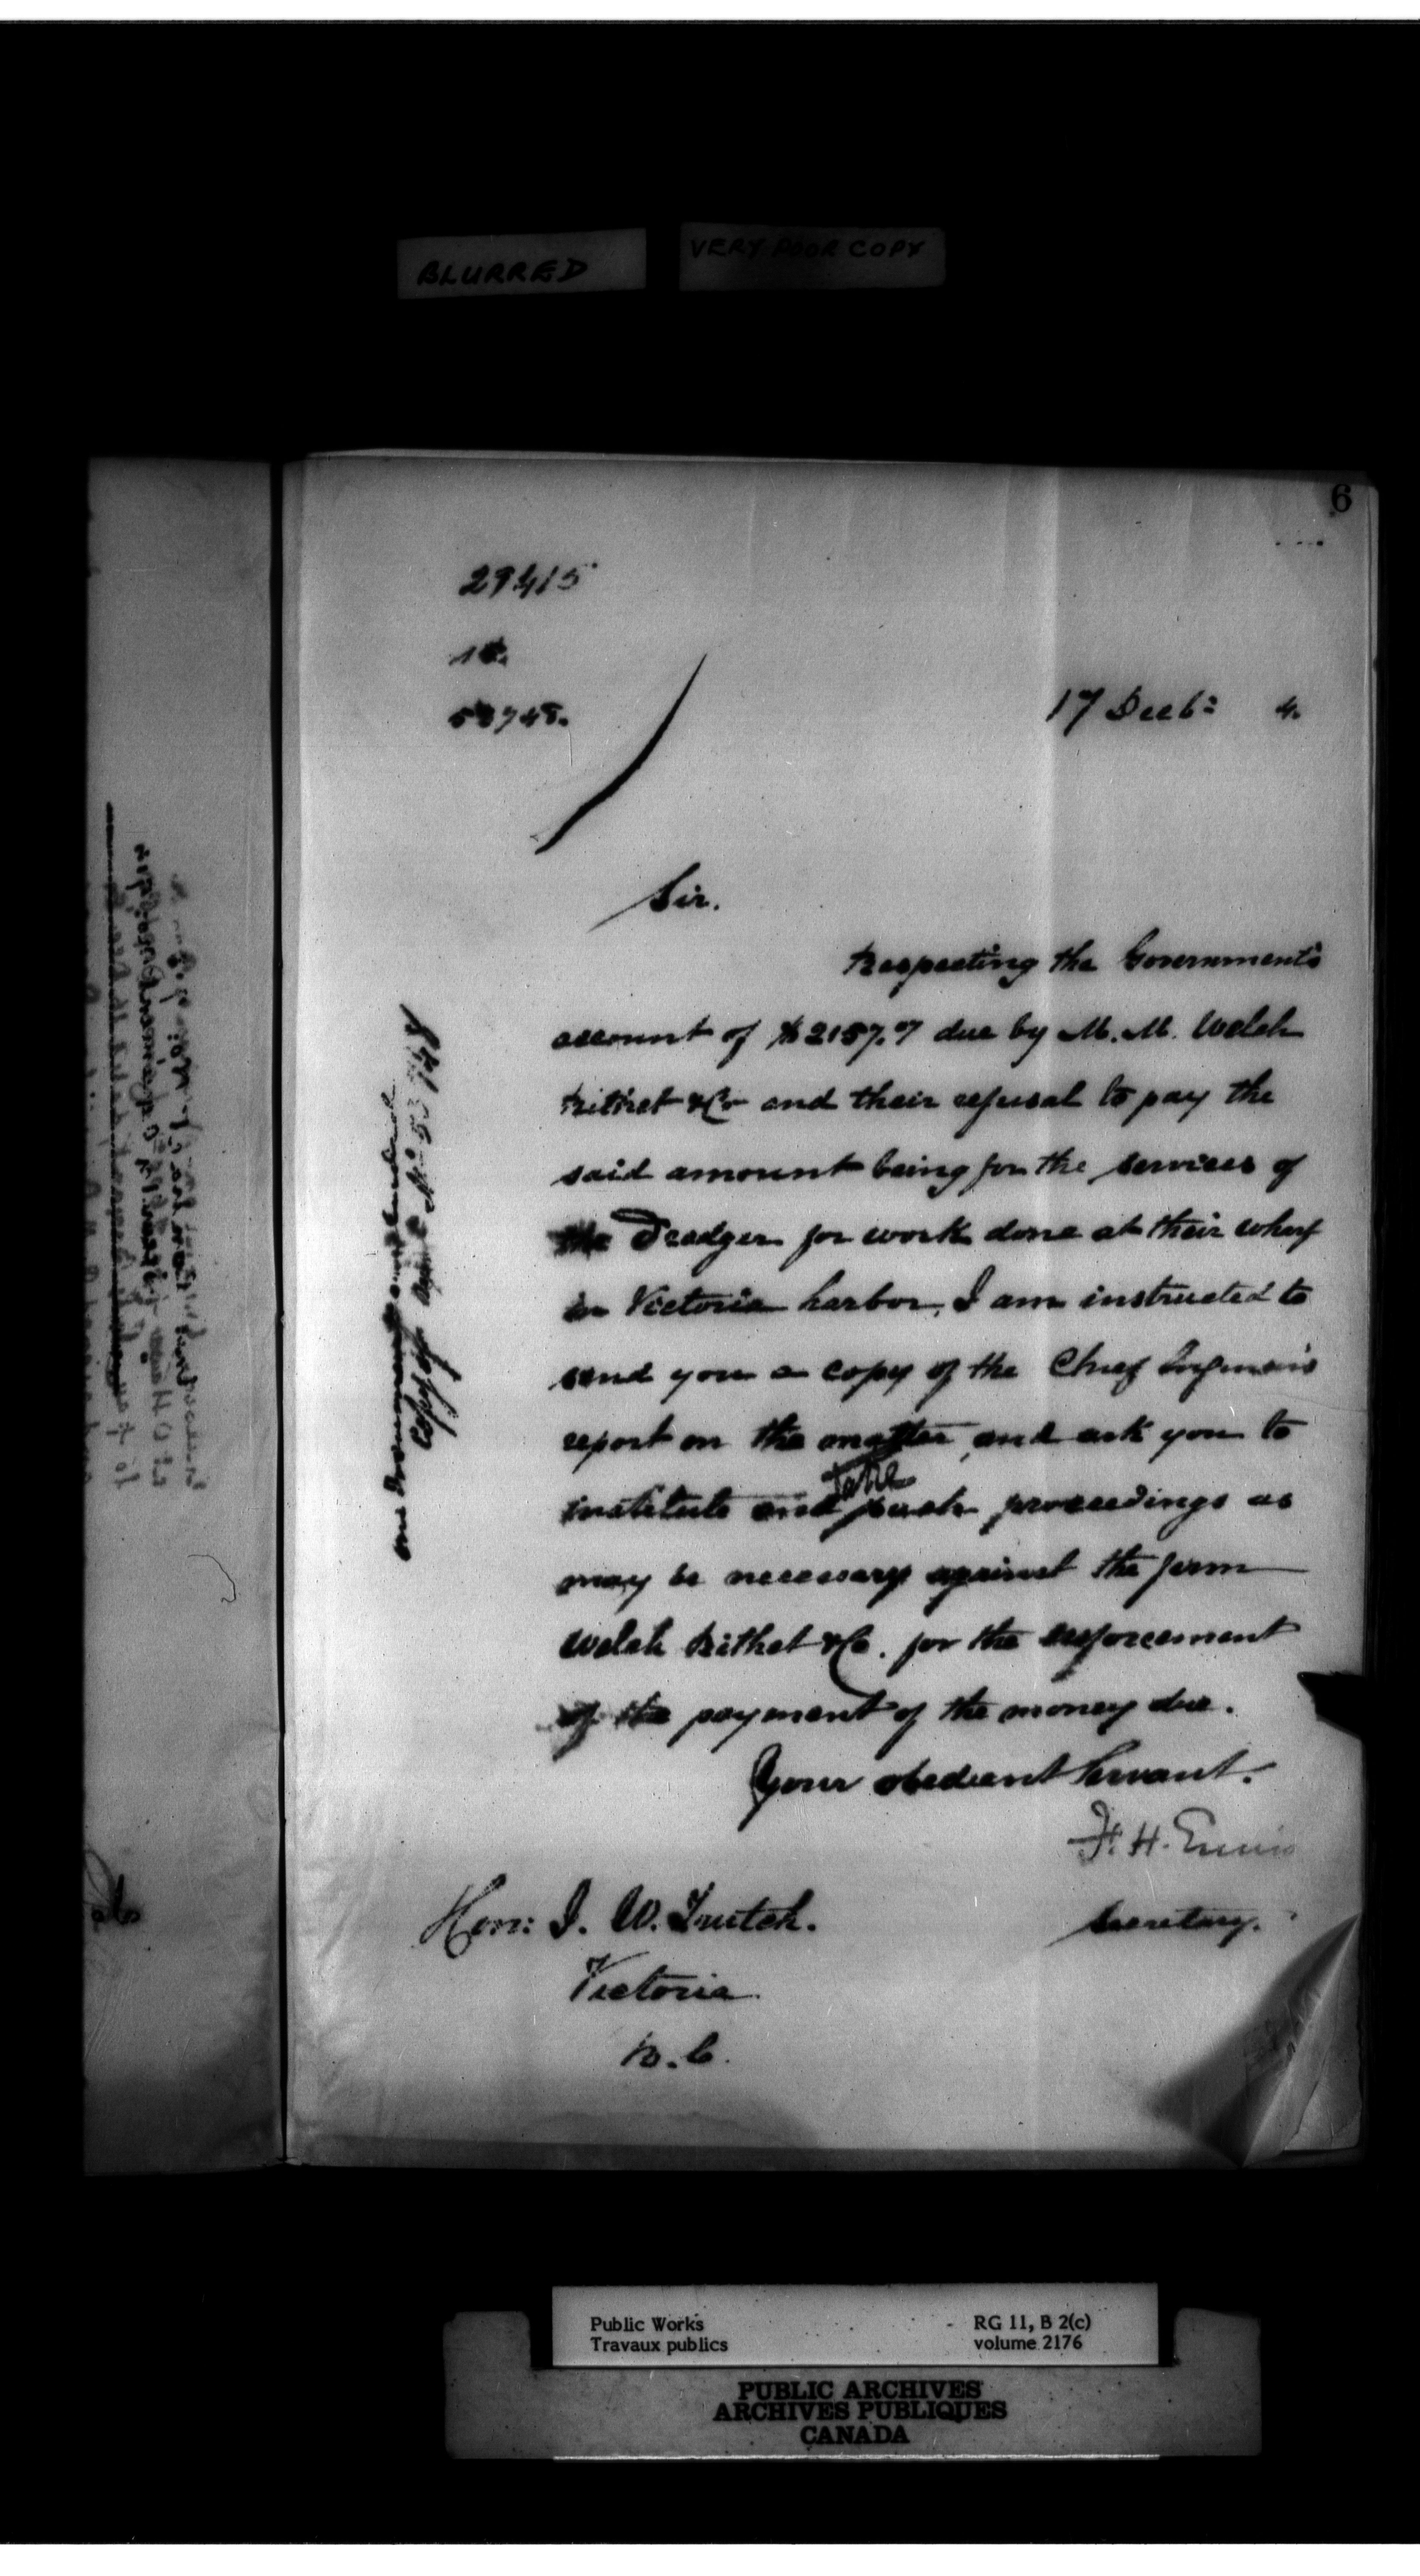 BLURRED
VERY POOR COPY
6
29415
53748.
17 Decb: 4.
Sir.
Respecting the Government's
account of $2157.07 due by M. M. Welch
Rithet & Co and their refusal to pay the
said amount being for the services of
the Dredger for work done at their wharf
in Victoria harbor, I am instructed to
send you a copy of the Chief Engineer's
report on the matter, and ask you to
take
institute and such proceedings as
may be necessary against the firm
Welch Rithet & Co. for the enforcement
of the payment of the money due.
Your obedient Servant.
F. H. Ennis
Secretary.
Hon: J. W. Trutch.
Victoria
B. C.
Copy of No 53748
Public Works
Travaux publics
RG 11, B 2(c)
volume 2176
PUBLIC ARCHIVES
ARCHIVES PUBLIQUES
CANADA